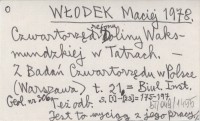 WŁODEK Maciej 1978.
Czwartorzęd rejonu Doliny Waks-
mundzkiej w Tatrach. —
Z Badań Czwartorzędu w Polsce
(Warszawa) t. 21 = Biul. Inst.
Geol. nr 306
s. 175-197.
Jest to wyciąg z jego pracy